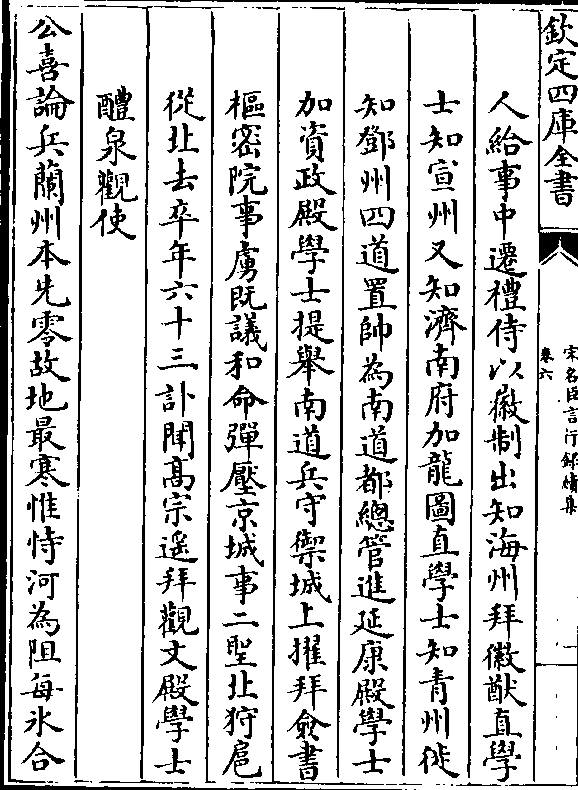 欽定四庫全書
宋名臣言行錄續集
卷六
人給事中遷禮侍以徽制出知海州拜徽猷直學
士知宣州又知濟南府加龍圖直學士知青州徙
知鄧州四道置帥為南道都總管進延康殿學士
加資政殿學士提舉南道兵守禦城上擢拜僉書
樞密院事虜既議和命彈壓京城事二聖北狩扈
從北去卒年六十三訃聞髙宗遥拜觀文殿學士
醴泉觀使
公喜論兵蘭州本先零故地最寒惟恃河為阻每氷合